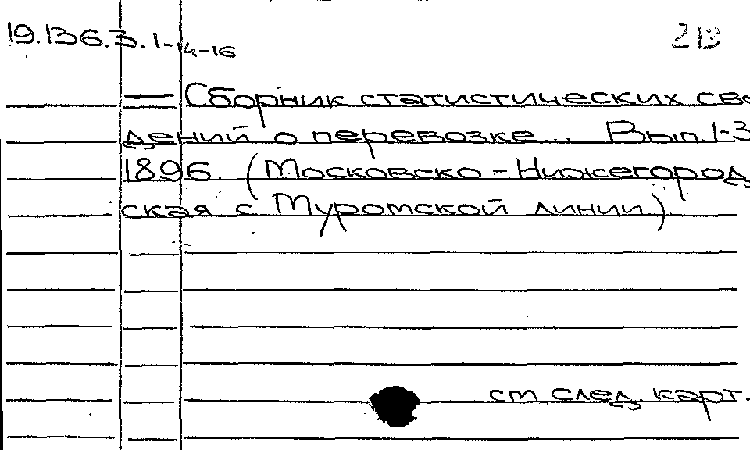 19.136.3.1-4-16 213
= Сборник статистических све
дений о перевозке... Вып.1-3
1896. (Московско-Нижегород
ская с Муромской линии.)
см след. карт.